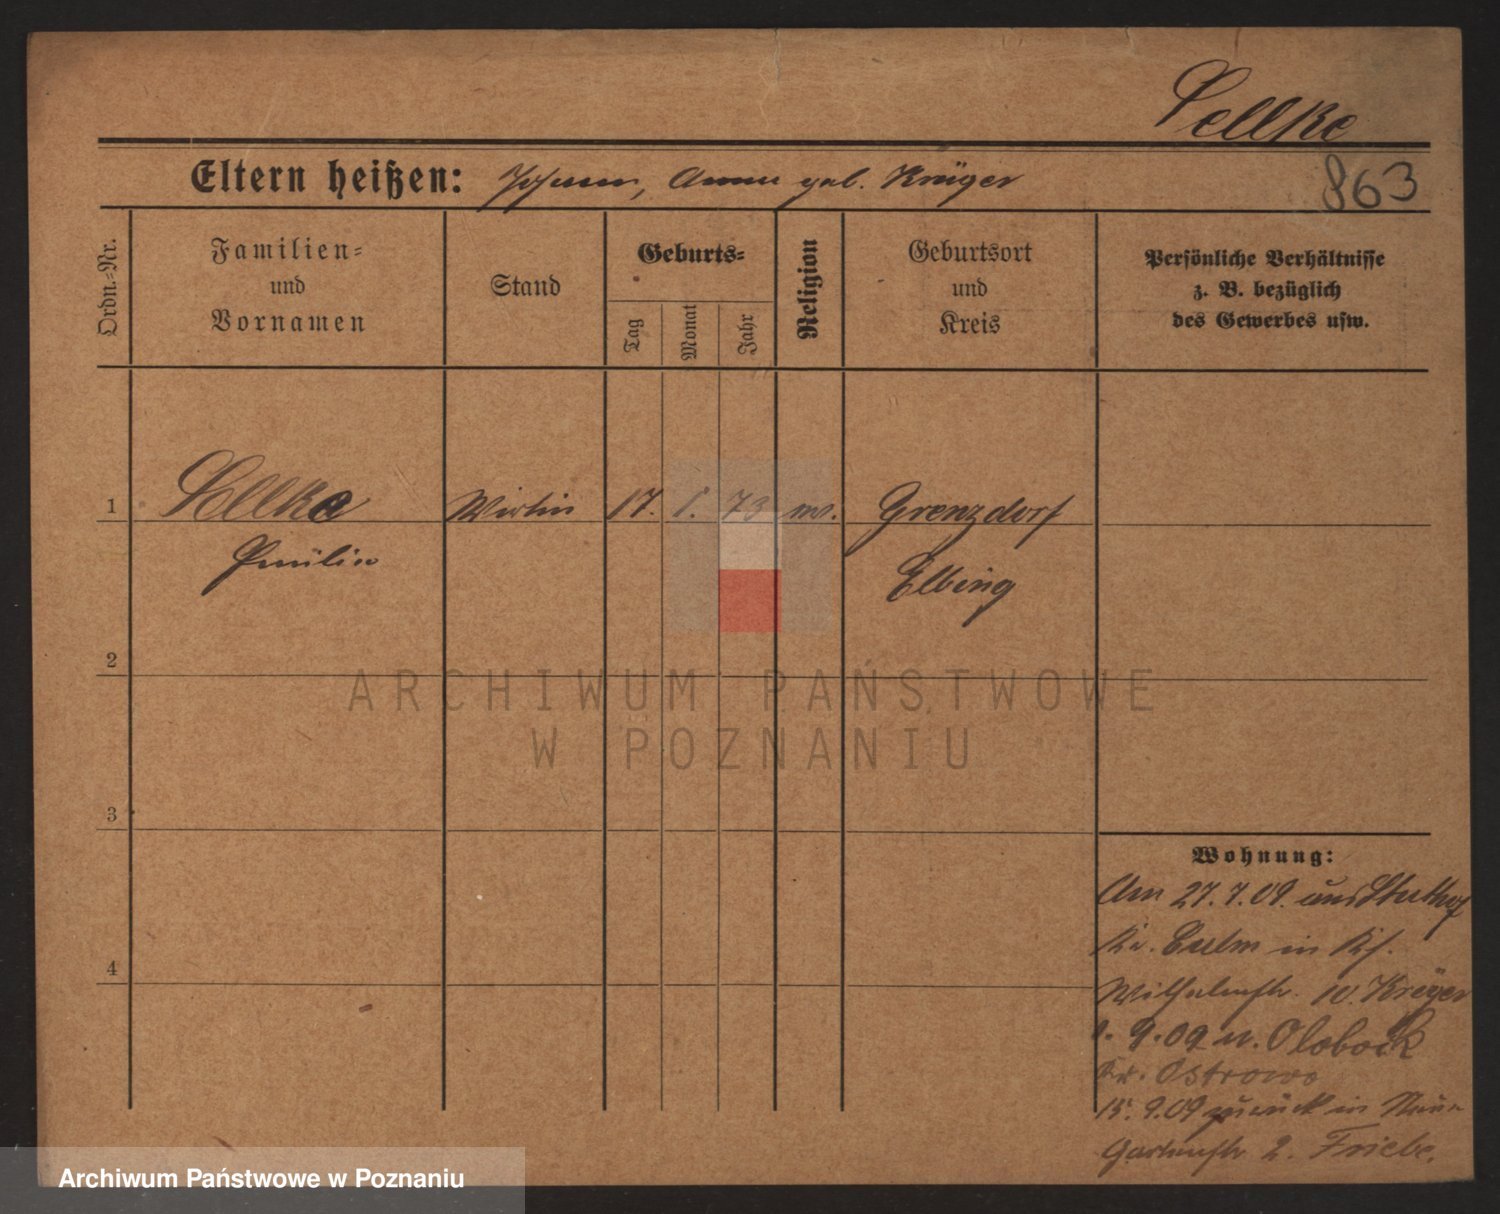 Sellke
Eltern heißen: Johann, Anna geb. Krüger
863
Ordn.-Nr.
Familien-
und
Vornamen
Stand
Geburts-
Tag
Monat
Jahr
Religion
Geburtsort
und
Kreis
Persönliche Verhältnisse
z. B. bezüglich
des Gewerbes usw.
1 Sellke Wirtin 17. 1. 73 ev. Grenzdorf
Emilie Elbing
2
ARCHIWUM PAŃSTWOWE
W POZNANIU
3
Wohnung:
Am 27.7.09. aus Stutthof
Kr. Culm in
4
Wilhelmstr. 10. Krüger
9.09 n. Olobock
Kr. Ostrowo
15.9.09 zurück in
Gartenstr 2. Friebe.
Archiwum Państwowe w Poznaniu